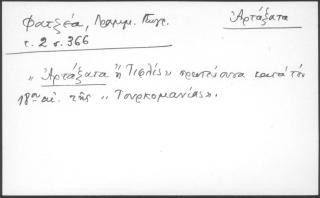 Φατζέα, Γραμμ. Πυγ. Ἀρτάξατα
τ. 2 σ. 366
„ Ἀρτάξατα ἢ Τιφλὶς» πρωτεύουσα κατὰ τὸν
18ον αἰ. τῆς „ Τουρκομανίας".